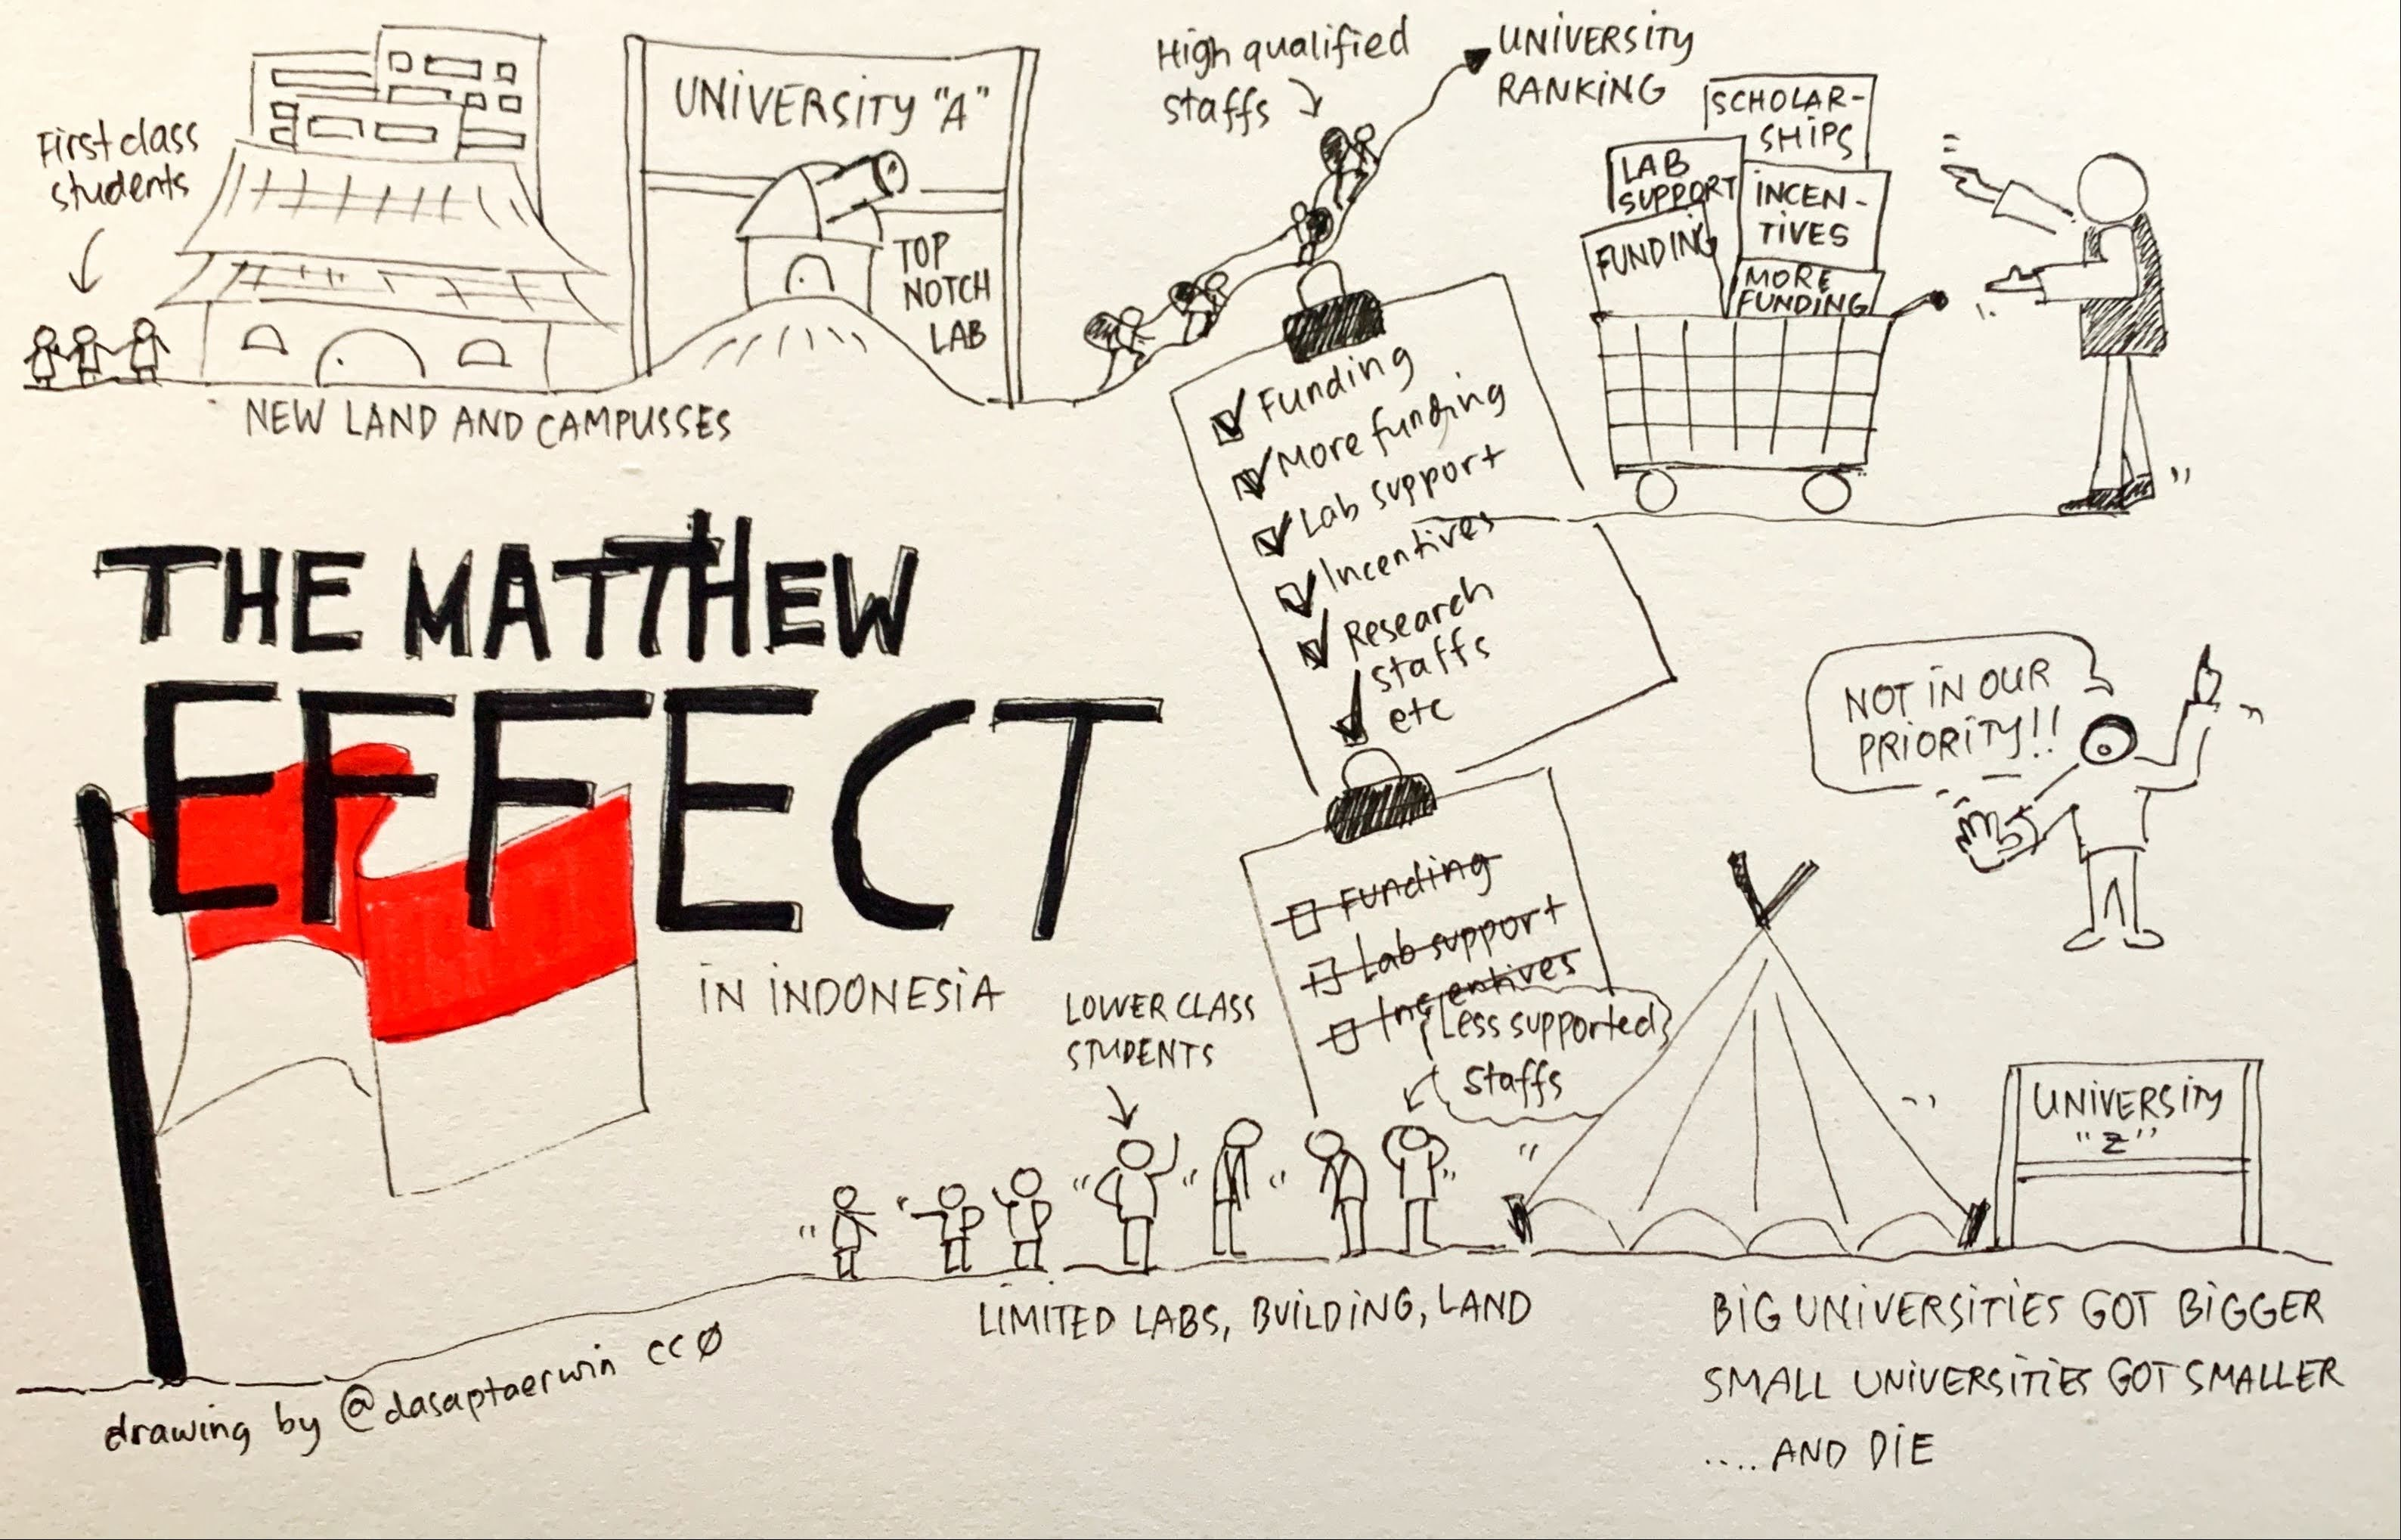 First class
students
NEW LAND AND CAMPUSSES
UNIVERSITY "A"
TOP
NOTCH
LAB
High qualified
staffs
UNIVERSITY
RANKING
SCHOLAR-
SHIPS
LAB
SUPPORT
INCEN-
TIVES
FUNDING
MORE
FUNDING
Funding
More funding
Lab support
Incentives
Research
staffs
etc
THE MATTHEW
EFFECT
IN INDONESIA
NOT IN OUR
PRIORITY!!
Funding
Lab support
Incentives
Less supported
staffs
LOWER CLASS
STUDENTS
UNIVERSITY
"Z"
LIMITED LABS, BUILDING, LAND
BIG UNIVERSITIES GOT BIGGER
SMALL UNIVERSITIES GOT SMALLER
.... AND DIE
drawing by @dasaptaerwin CC0